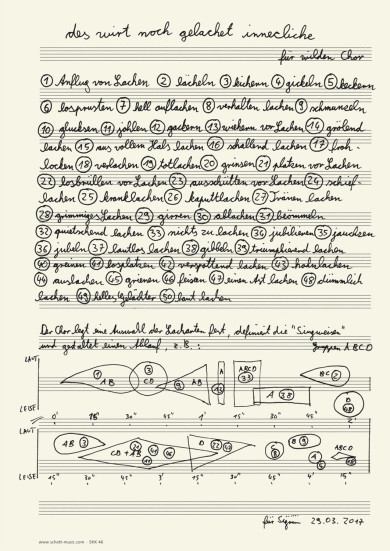 des wirt noch gelachet innecliche
für wilden Chor
① Anflug von Lachen ② lächeln ③ kichern ④ gickeln ⑤ keckern
⑥ losprusten ⑦ hell auflachen ⑧ verhalten lachen ⑨ schmunzeln
⑩ glucksen ⑪ johlen ⑫ gackern ⑬ wiehern vor Lachen ⑭ grölend
lachen ⑮ aus vollem Hals lachen ⑯ schallend lachen ⑰ froh-
locken ⑱ verlachen ⑲ totlachen ⑳ grinsen ㉑ platzen vor Lachen
㉒ losbrüllen vor Lachen ㉓ ausschütten vor Lachen ㉔ schief-
lachen ㉕ kranklachen ㉖ kaputtlachen ㉗ Tränen lachen
㉘ grimmiges Lachen ㉙ ㉚ ablachen ㉛ beömmeln
㉜ quietschend lachen ㉝ nichts zu lachen ㉞ jubilieren ㉟ jauchzen
㊱ jubeln ㊲ lautlos lachen ㊳ gibbeln ㊴ triumphierend lachen
㊵ greinen ㊶ losplatzen ㊷ verspottend lachen ㊸ hohnlachen
㊹ auslachen ㊺ grienen ㊻ feixen ㊼ einen Ast lachen ㊽ dümmlich
lachen ㊾ helles Gelächter ㊿ laut lachen
Der Chor legt eine Auswahl der Lacharten fest, definiert die "Singweisen"
und gestaltet einen Ablauf, z.B.: Gruppen A B C D
LAUT
① AB ③ CD ⑨ AB A ABCD 33 BC ②
A 38 D 48
LEISE
0' 15" 30" 45" 1' 15" 30" 45" 2'
LAUT
AB ③ CD + AB D 22 B ⑨ ABCD
A
LEISE
15" 30" 45" 3' 15" 30" 45" 4' 15"
für 29.03.2017
www.schott-music.com - SKK 46